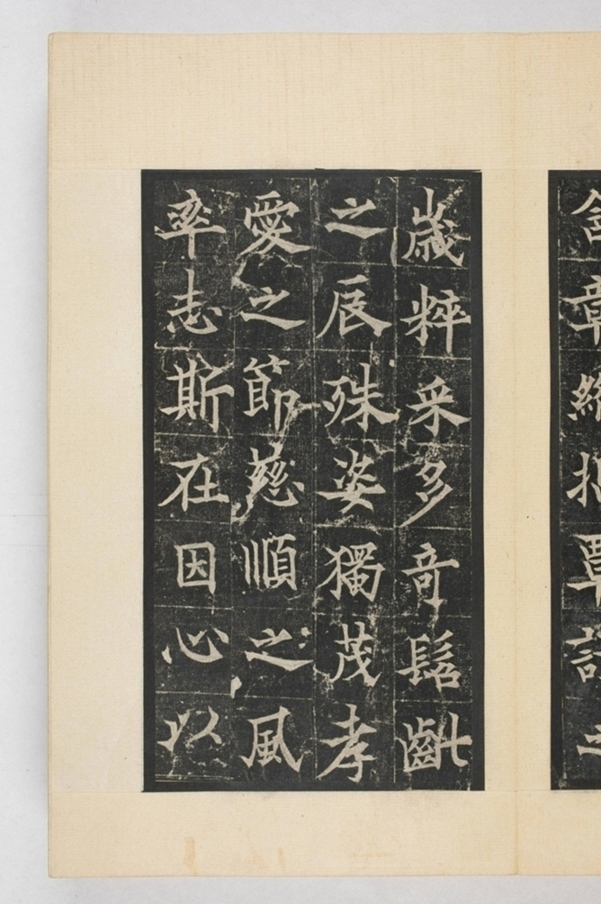 含章覃訏之
歲粹采多奇髫齔
之辰殊姿獨茂孝
愛之節慈順之風
率志斯在因心以